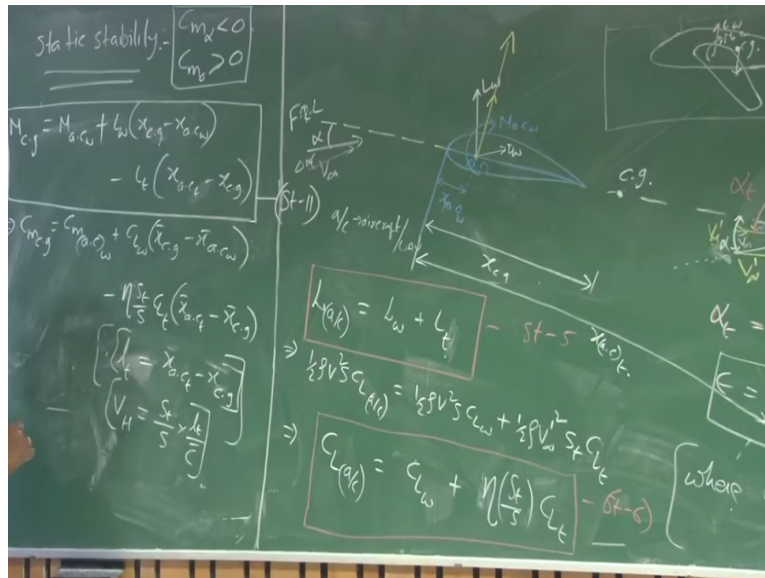 static stability:-
C_{m_α} < 0
C_{m_0} > 0
M_{c.g} = M_{a.c_w} + L_w (x_{c.g} - x_{a.c_w})
- L_t (x_{a.c_t} - x_{c.g})
(St-11)
⇒ C_{m_{c.g}} = C_{m_{(a.c)_w}} + C_{L_w} (x̄_{c.g} - x̄_{a.c_w})
- η \frac{S_t}{S} C_{L_t} (x̄_{a.c_t} - x̄_{c.g})
l_t = x_{a.c_t} - x_{c.g}
V_H = \frac{S_t}{S} × \frac{l_t}{c̄}
F.R.L
α
V_∞
L_w
M_{a.c_w}
D_w
c.g.
x_{c.g}
a/c - aircraft
L_{(a/c)} = L_w + L_t - St-5
x_{(a.c)_t}
⇒ ½ρV²S C_{L_{(a/c)}} = ½ρV²S C_{L_w} + ½ρV'²_∞ S_t C_{L_t}
⇒ C_{L_{(a/c)}} = C_{L_w} + η (\frac{S_t}{S}) C_{L_t} - (St-6)
c.g.
α_t
α_t =
ϵ =
where